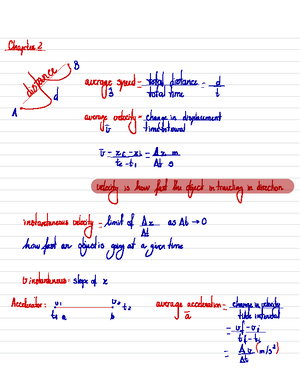 Chapter 2
B
distance
d
A
average speed = total distance = d
s total time t
average velocity = change in displacement
v time interval
v = x₂ - x₁ = Δx m
t₂ - t₁ Δt s
velocity is how fast the object is traveling in direction
instantaneous velocity = limit of Δx as Δt → 0
Δt
how fast an object is going at a given time
v instantaneous = slope of x
Acceleration: v₁ v₂ t₂
t₁ a b
average acceleration = change in velocity
a time interval
= vf - vi
tf - ti
= Δv (m/s²)
Δt